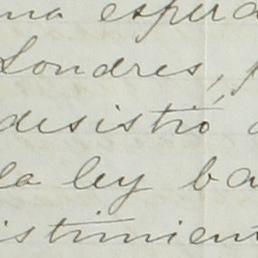 na espera
Londres,
desistió
la ley ba
istimien